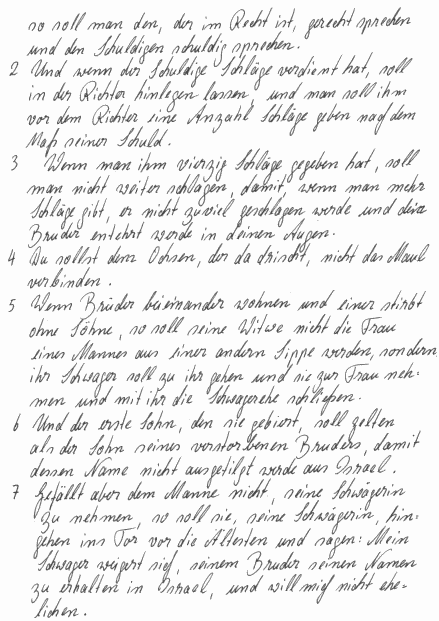 so soll man den, der im Recht ist, gerecht sprechen
und den Schuldigen schuldig sprechen.
2 Und wenn der Schuldige Schläge verdient hat, soll
in der Richter hinlegen lassen, und man soll ihm
vor dem Richter eine Anzahl Schläge geben nach dem
Maß seiner Schuld.
3 Wenn man ihm vierzig Schläge gegeben hat, soll
man nicht weiter schlagen, damit, wenn man mehr
Schläge gibt, er nicht zuviel geschlagen werde und dein
Bruder entehrt werde in deinen Augen.
4 Du sollst dem Ochsen, der da drischt, nicht das Maul
verbinden.
5 Wenn Brüder beieinander wohnen und einer stirbt
ohne Söhne, so soll seine Witwe nicht die Frau
eines Mannes aus einer andern Sippe werden, sondern
ihr Schwager soll zu ihr gehen und sie zur Frau neh-
men und mit ihr die Schwagerehe schließen.
6 Und der erste Sohn, den sie gebiert, soll gelten
als der Sohn seines verstorbenen Bruders, damit
dessen Name nicht ausgetilgt werde aus Israel.
7 Gefällt aber dem Manne nicht, seine Schwägerin
zu nehmen, so soll sie, seine Schwägerin, hin-
gehen ins Tor vor die Ältesten und sagen: Mein
Schwager weigert sich, seinem Bruder seinen Namen
zu erhalten in Israel, und will mich nicht ehe-
lichen.